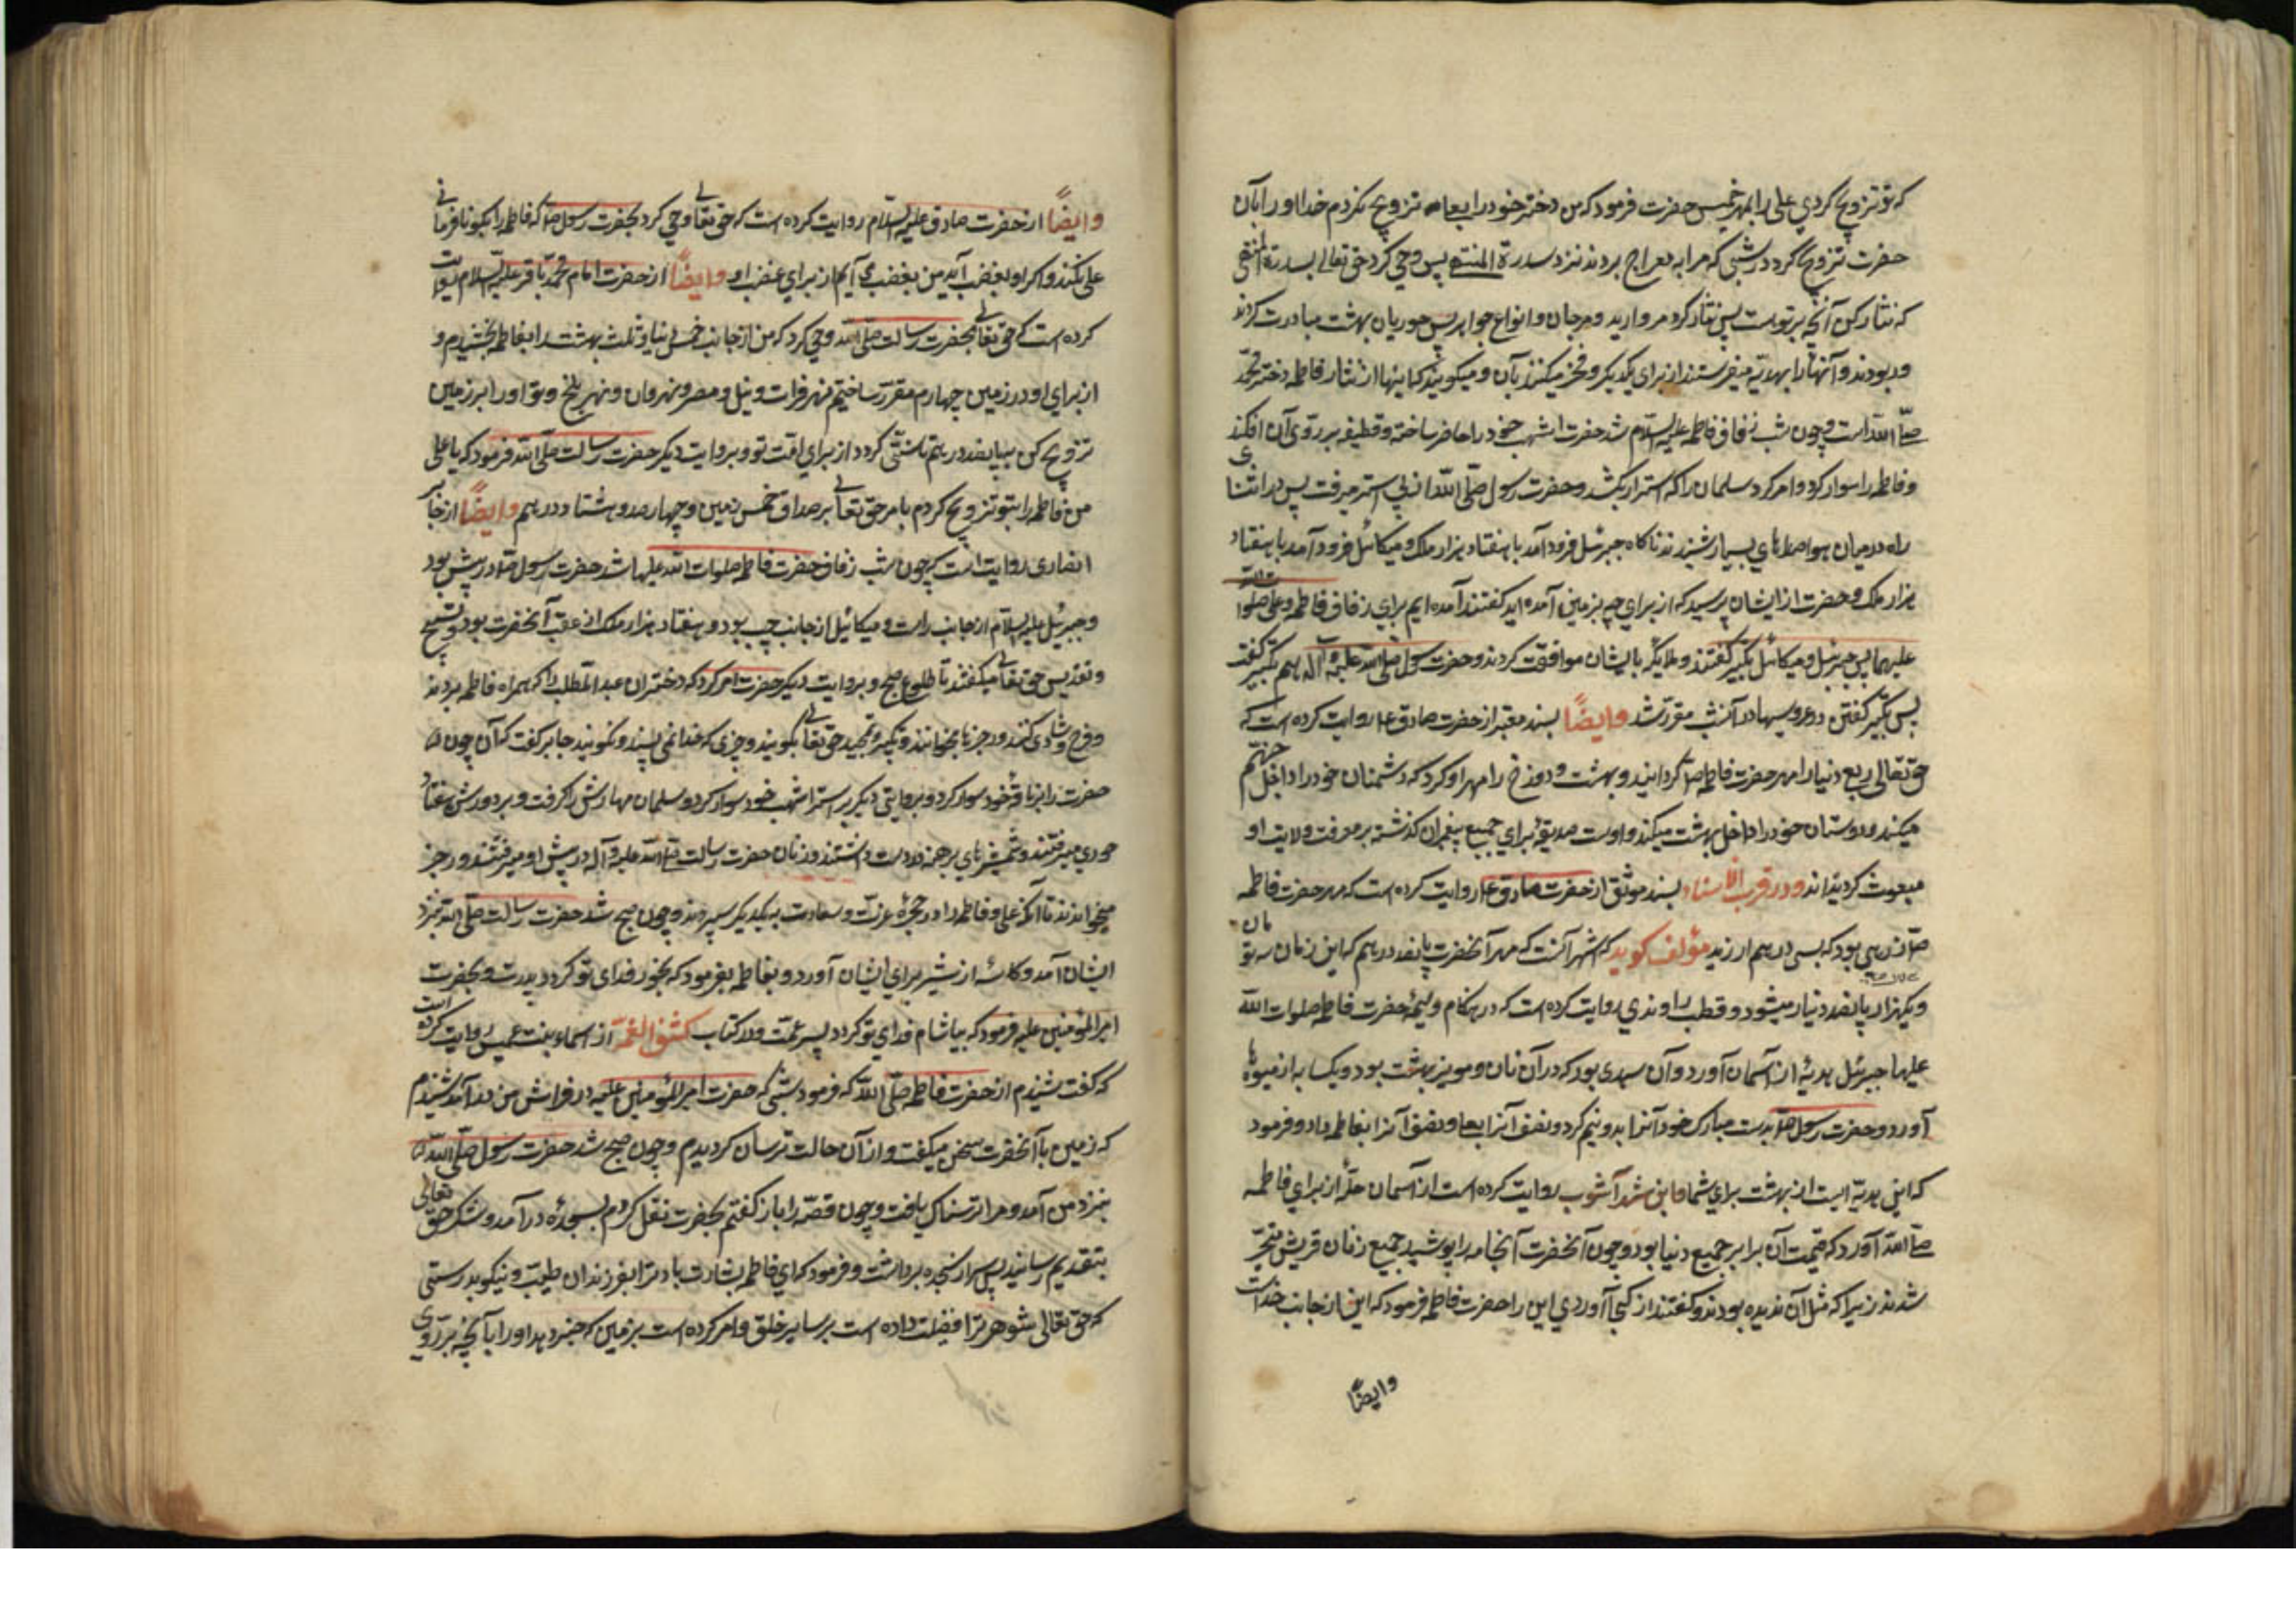 که تو تزویج کردي علی را بمهر خسیس حضرت فرمود که من دختر خود را بعلی تزویج نکردم خدا او را بآن
حضرت تزویج کرد در شبی که مرا به معراج بردند نزد سدرة المنتهی پس وحي کرد حق تعالی بسدرة المنتهی
که نثار کن آنچه بر تو است پس نثار کرد مروارید و مرجان و انواع جواهر پس حوریان بهشت مبادرت کردند
و ربودند و آنها را بهدیه میفرستند از برای یکدیکر و فخر میکنند بآن و میکویند که اینها از نثار فاطمه دختر محمّد
صلّی اللّه است و چون شب زفاف فاطمه علیه السلام شد حضرت اشهب خود را حاضر ساخته و قطیفه بر روی آن افکند
و فاطمه را سوار کرد و امر کرد سلمان را که استر را بکشد و حضرت رسول صلّی اللّه از پی استر میرفت پس در اثنای
راه در میان هوا صداهاي بسیار شنیدند ناکاه جبرئیل فرود آمد با هفتاد هزار ملک و میکائیل فرود آمد با هفتاد
هزار ملک و حضرت از ایشان پرسید که از برای چه بزمین آمده اید کفتند آمده ایم برای زفاف فاطمه و علی صلوات اللّه
علیهما پس جبرئیل و میکائیل تکبیر کفتند و ملائکه با ایشان موافقت کردند و حضرت رسول صلی اللّه علیه و آله هم تکبیر کفت
پس تکبیر کفتن در عروسیها در آنشب مقرّر شد وایضاً بسند معتبر از حضرت صادق ع روایت کرده است که
حق تعالی ربع دنیا را مهر حضرت فاطمه ص کردانید و بهشت و دوزخ را مهر او کرد که دشمنان خود را داخل جهنّم
میکند و دوستان خود را داخل بهشت میکند و اوست صدیقه برای جمیع پیغمبران کذشته بر معرفت ولایت او
مبعوث کردیده‌اند و در قرب الاسناد بسند موثّق از حضرت صادق ع روایت کرده است که مهر حضرت فاطمه
ص زرهی بود که بسی درهم ارزید مؤلف کوید که اشهر آنست که مهر آنحضرت پانصد درهم که این زمان سه تومان
و یکهزار پانصد دینار میشود و قطب راوندي روایت کرده است که در هنکام ولیمه حضرت فاطمه صلوات اللّه
علیها جبرئیل هدیۀ از آسمان آورد و آن سبدی بود که در آن نان و مویز بهشت بود و یک سا به از میوۀ
آورد و حضرت رسول ص بدست مبارک خود آنرا بدو نیم کرد و نصف آنرا بعلی و نصف آنرا بفاطمه داد و فرمود
که این هدیّه ایست از بهشت برای شما و ابن شهر آشوب روایت کرده است از آسمان حلّۀ از برای فاطمه
ص اللّه آورد که قیمت آن برابر جمیع دنیا بود و چون آنحضرت آنجامه را پوشید جمیع زنان قریش متحیّر
شدند زیرا که مثل آن ندیده بودند و کفتند از کجا آوردي این را حضرت فاطمه فرمود که این از جانب خداست
وایضاً
وایضاً از حضرت صادق علیه السلام روایت کرده است که حق تعالی وحي کرد بحضرت رسول ص که فاطمه را بکو نافرمانی
علی نکند و اکر او بغضب آید من بغضب می آیم از برای غضب او وایضاً از حضرت امام محمّد باقر علیه السلام روایت
کرده است که حق تعالی بحضرت رسالت صلّی اللّه وحي کرد که من از جانب خمس دنیا و ثلث بهشت را بفاطمه بخشیدم و
از برای او در زمین چهارم مقرّر ساختم نهر فرات و نیل و مصر و نهروان و نهر بلخ و تو او را بر زمین
تزویج کن بپانصد درهم تا سنّتی کردد از برای امّت تو و بروایت دیکر حضرت رسالت صلّی اللّه فرمود که یا علی
من فاطمه را بتو تزویج کردم بامر حق تعالی بر صداق خمس زمین و چهارصد و هشتاد درهم وایضاً از جابر
انصاری روایت است که چون شب زفاف حضرت فاطمه صلوات اللّه علیها شد حضرت رسول ص در پیش بود
و جبرئیل علیه السلام از جانب راست و میکائیل از جانب چپ بود و هفتاد هزار ملک از عقب آنحضرت بود و تسبیح
و تقدیس حق تعالی میکفتند تا طلوع صبح و بروایت دیکر حضرت امر کرد که دختران عبدالمطلب را که همراه فاطمه بروند
و فرح و شادی کنند و رجزها بخوانند و تکبیر و تمجید حق تعالی بکویند و چیزی که خدا نمی پسندد نکویند جابر کفت که آن
حضرت را بر ناقۀ خود سوار کرد و بروایتی دیکر بر استر اشهب خود سوار کرد و سلمان مهارش را کرفت و بر دورش هفتاد
حوري میرفتند و شمشیرهاي برهنه در دست داشتند و زنان حضرت رسالت صلی اللّه علیه و آله در پیش او میرفتند و رجز
میخواندند تا آنکه علی و فاطمه را در حجرۀ عزّت و سعادت به یکدیکر سپردند و چون صبح شد حضرت رسالت صلّی اللّه بنزد
ایشان آمد و کاسۀ از شیر برای ایشان آورد و بفاطمه بفرمود که بخور فدای تو کردد پدرت و بحضرت
امیرالمؤمنین علیه فرمود که بیاشام فدای تو کردد پسر عمّت و در کتاب کشف الغمّة از اسماء بنت عمیس روایت کرده است
که کفت شنیدم از حضرت فاطمه صلّی اللّه که فرمود شبی که حضرت امیرالمؤمنین علیه در فراش من در آمد شنیدم
که زمین با آنحضرت سخن میکفت و از آن حالت ترسان کردیدم و چون صبح شد حضرت رسول صلّی اللّه
بنزد من آمد و مرا ترسناک یافت و چون قصّه را باز کفتم بحضرت نقل کردم بسجده در آمد و شکر حق تعالی
بتقدیم رسانید پس سر از سجده برداشت و فرمود که اي فاطمه بشارت باد ترا بفرزندان طیّب و نیکو بدرستی
که حق تعالی شوهر ترا فضیلت داده است بر سایر خلق و امر کرده است بزمین که خبر دهد او را بآنچه بر روی